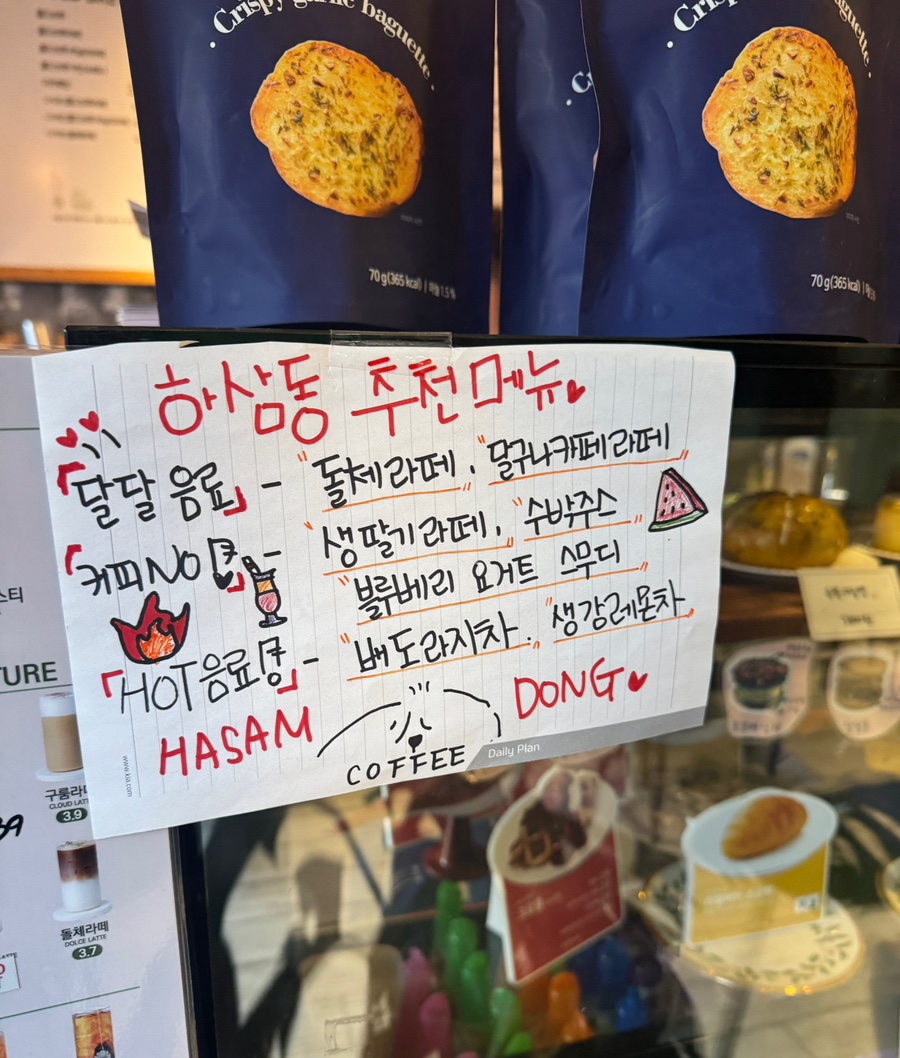 · Crispy garlic baguette ·
70 g (365 kcal)
70 g (365 kcal)
하삼동 추천메뉴
「달달 음료」 - "돌체라떼", "말구나카페라떼"
「커피 NO 존」 - "생딸기라떼", "수박주스"
"블루베리 요거트 스무디"
「HOT음료존」 - "배도라지차", "생강레몬차"
HASAM
DONG
COFFEE
Daily Plan
TURE
구름라떼
CLOUD LATTE
3.9
돌체라떼
DOLCE LATTE
3.7